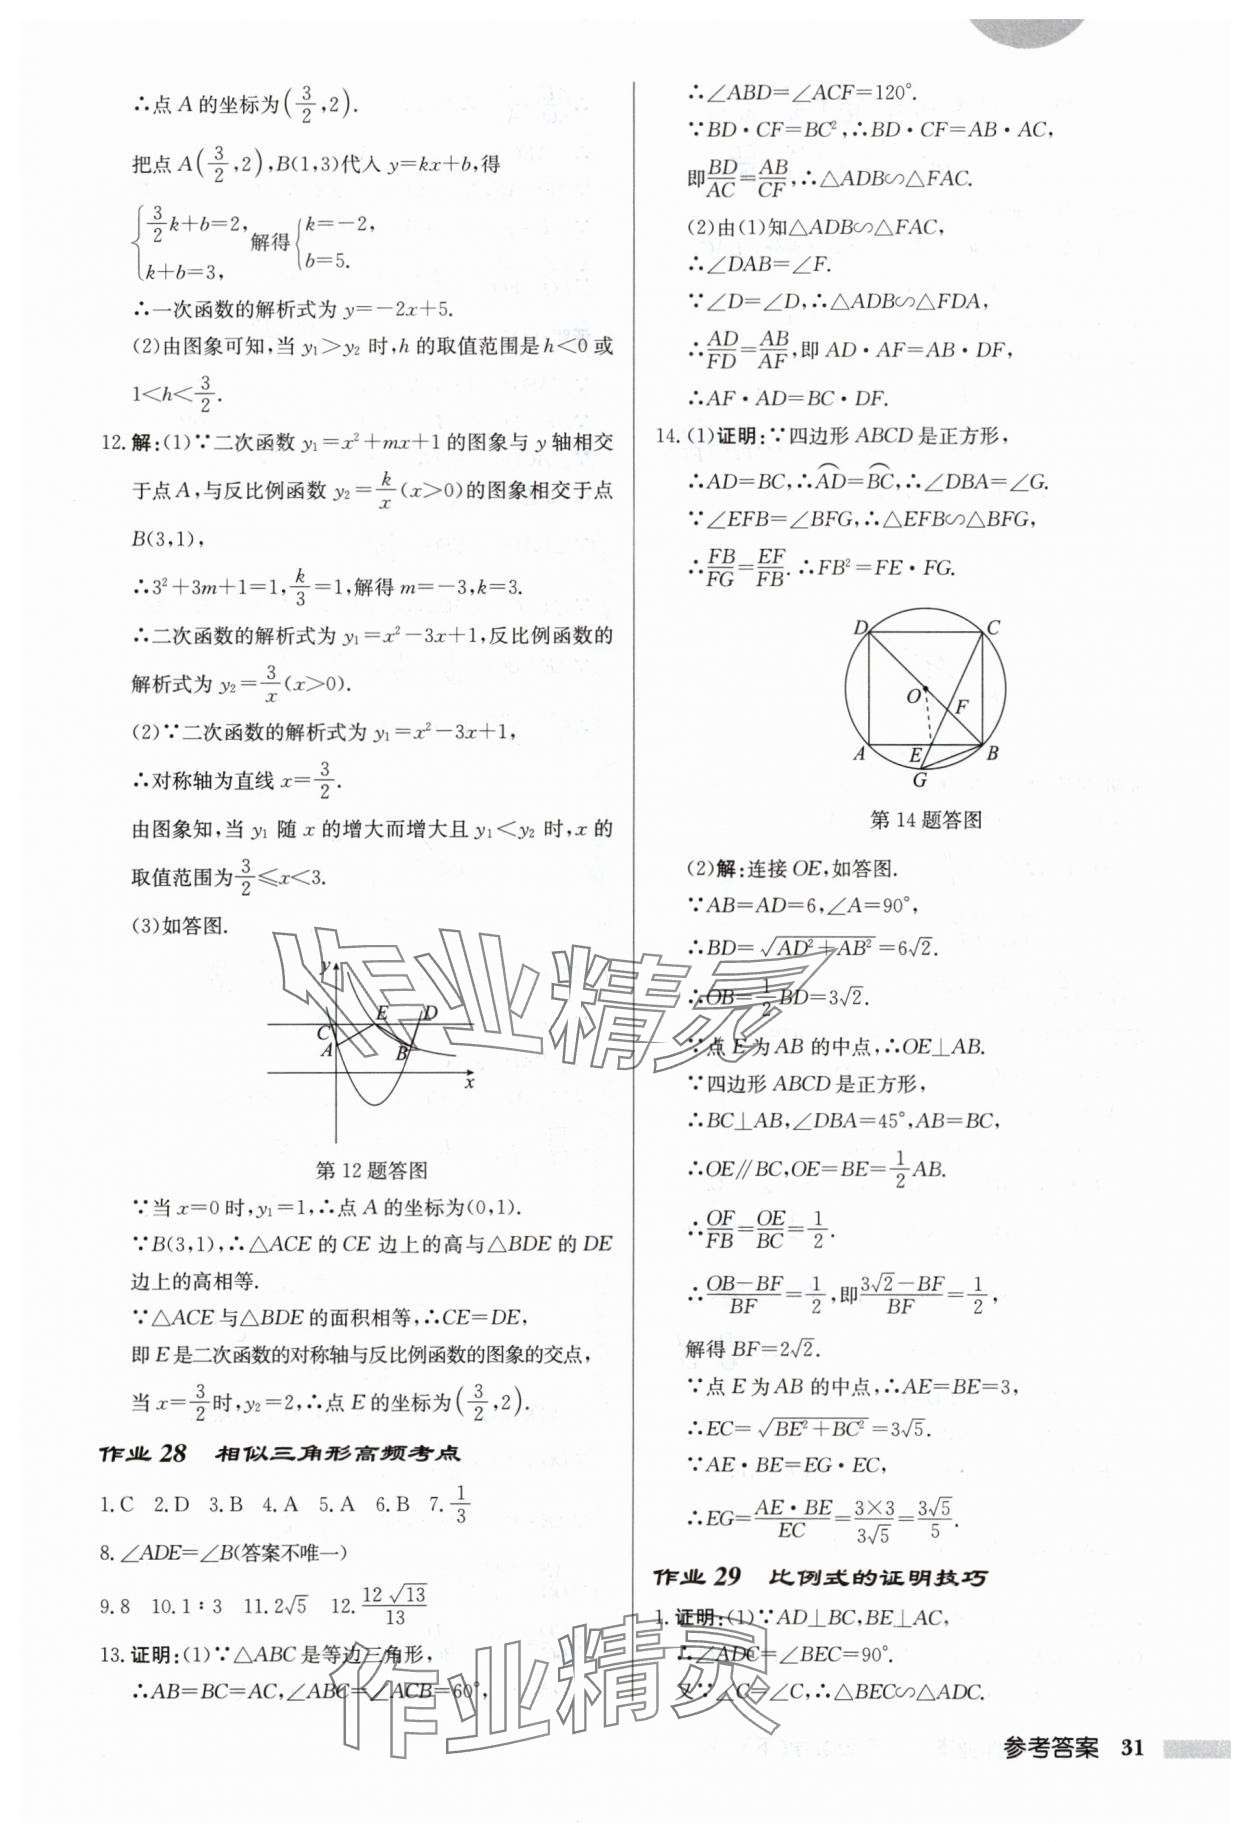 ∴点 A 的坐标为(3/2,2).
把点 A(3/2,2),B(1,3)代入 y=kx+b,得
{3/2k+b=2, k+b=3, 解得{k=-2, b=5.
∴一次函数的解析式为 y=-2x+5.
(2)由图象可知,当 y₁>y₂ 时,h 的取值范围是 h<0 或
1<h<3/2.
12.解:(1)∵二次函数 y₁=x²+mx+1 的图象与 y 轴相交
于点 A,与反比例函数 y₂=k/x(x>0)的图象相交于点
B(3,1),
∴3²+3m+1=1,k/3=1,解得 m=-3,k=3.
∴二次函数的解析式为 y₁=x²-3x+1,反比例函数的
解析式为 y₂=3/x(x>0).
(2)∵二次函数的解析式为 y₁=x²-3x+1,
∴对称轴为直线 x=3/2.
由图象知,当 y₁ 随 x 的增大而增大且 y₁<y₂ 时,x 的
取值范围为3/2≤x<3.
(3)如答图.
y
E D
C
A B
x
第 12 题答图
∵当 x=0 时,y₁=1,∴点 A 的坐标为(0,1).
∵B(3,1),∴△ACE 的 CE 边上的高与△BDE 的 DE
边上的高相等.
∵△ACE 与△BDE 的面积相等,∴CE=DE,
即 E 是二次函数的对称轴与反比例函数的图象的交点,
当 x=3/2时,y₂=2,∴点 E 的坐标为(3/2,2).
作业 28 相似三角形高频考点
1.C 2.D 3.B 4.A 5.A 6.B 7.1/3
8.∠ADE=∠B(答案不唯一)
9.8 10.1∶3 11.2√5 12.12√13/13
13.证明:(1)∵△ABC 是等边三角形,
∴AB=BC=AC,∠ABC=∠ACB=60°,
∴∠ABD=∠ACF=120°.
∵BD·CF=BC²,∴BD·CF=AB·AC,
即BD/AC=AB/CF,∴△ADB∽△FAC.
(2)由(1)知△ADB∽△FAC,
∴∠DAB=∠F.
∵∠D=∠D,∴△ADB∽△FDA,
∴AD/FD=AB/AF,即 AD·AF=AB·DF,
∴AF·AD=BC·DF.
14.(1)证明:∵四边形 ABCD 是正方形,
∴AD=BC,∴A͡D=B͡C,∴∠DBA=∠G.
∵∠EFB=∠BFG,∴△EFB∽△BFG,
∴FB/FG=EF/FB.∴FB²=FE·FG.
D C
O F
A E B
G
第 14 题答图
(2)解:连接 OE,如答图.
∵AB=AD=6,∠A=90°,
∴BD=√(AD²+AB²)=6√2.
∴OB=1/2BD=3√2.
∵点 E 为 AB 的中点,∴OE⊥AB.
∵四边形 ABCD 是正方形,
∴BC⊥AB,∠DBA=45°,AB=BC,
∴OE∥BC,OE=BE=1/2AB.
∴OF/FB=OE/BC=1/2.
∴(OB-BF)/BF=1/2,即(3√2-BF)/BF=1/2,
解得 BF=2√2.
∵点 E 为 AB 的中点,∴AE=BE=3,
∴EC=√(BE²+BC²)=3√5.
∵AE·BE=EG·EC,
∴EG=AE·BE/EC=3×3/3√5=3√5/5.
作业 29 比例式的证明技巧
1.证明:(1)∵AD⊥BC,BE⊥AC,
∴∠ADC=∠BEC=90°.
又∵∠C=∠C,∴△BEC∽△ADC.
作业精灵
作业精灵
参考答案 31